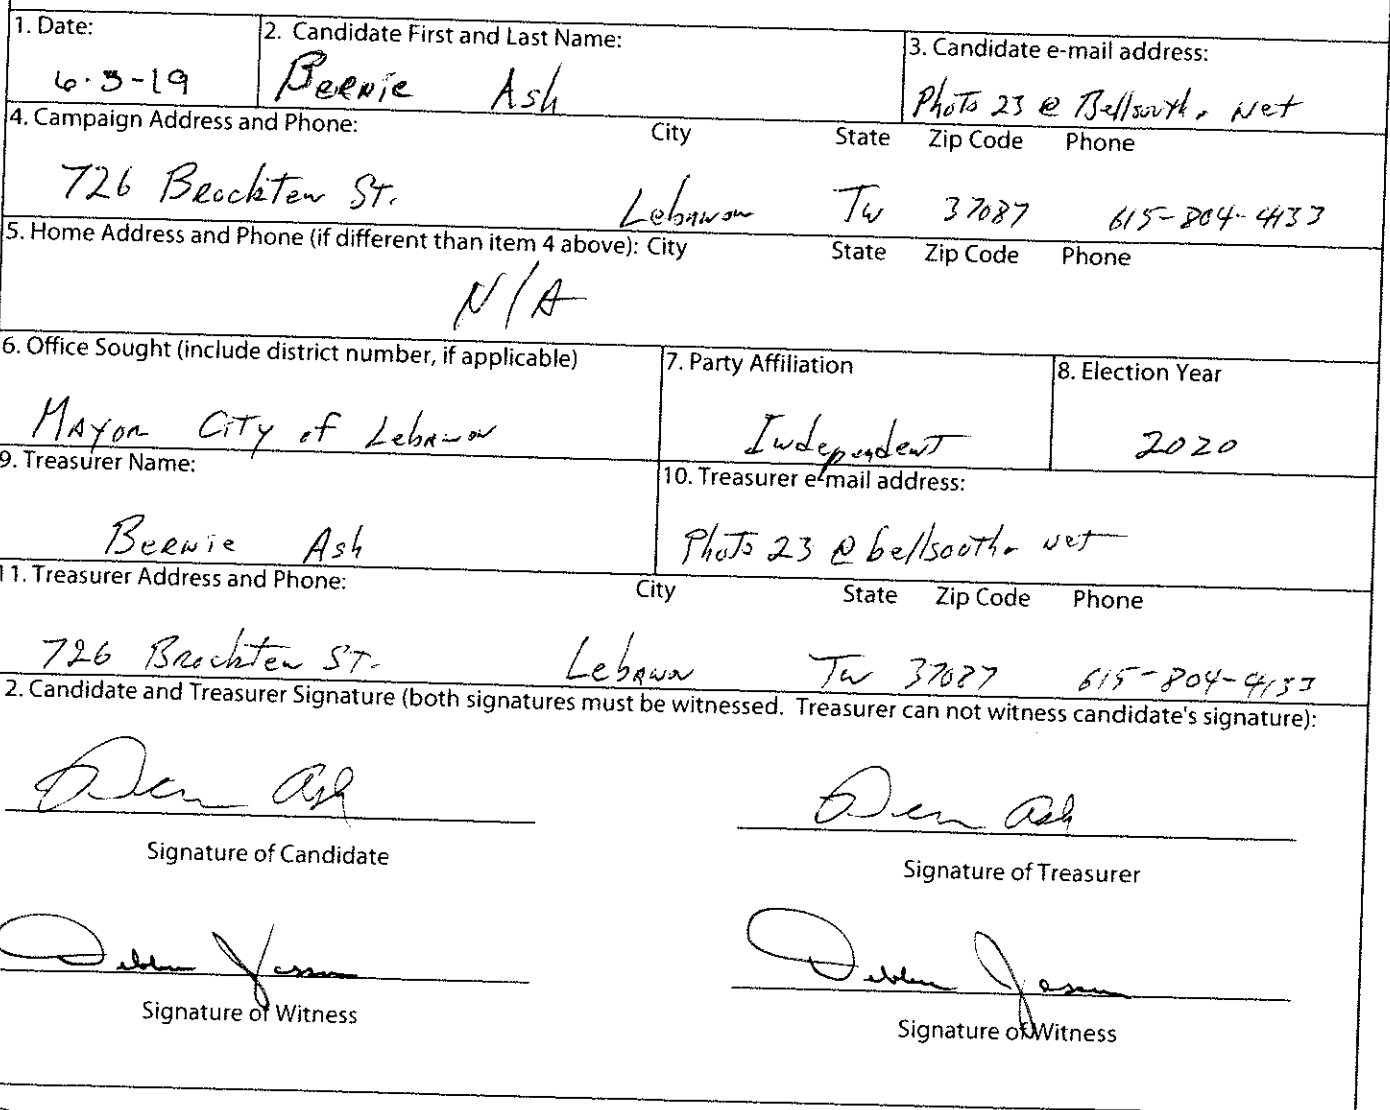 1. Date: 2. Candidate First and Last Name: 3. Candidate e-mail address:
6-3-19 Bernie Ash Photo 23 @ Bellsouth. Net
4. Campaign Address and Phone: City State Zip Code Phone
726 Brockten St. Lebanon TN 37087 615-804-4133
5. Home Address and Phone (if different than item 4 above): City State Zip Code Phone
N/A
6. Office Sought (include district number, if applicable) 7. Party Affiliation 8. Election Year
Mayor City of Lebanon Independent 2020
9. Treasurer Name: 10. Treasurer e-mail address:
Bernie Ash Photo 23 @ bellsouth. net
11. Treasurer Address and Phone: City State Zip Code Phone
726 Brockten ST. Lebanon TN 37087 615-804-4133
2. Candidate and Treasurer Signature (both signatures must be witnessed. Treasurer can not witness candidate's signature):
Ash Ash
Signature of Candidate Signature of Treasurer
Signature of Witness Signature of Witness